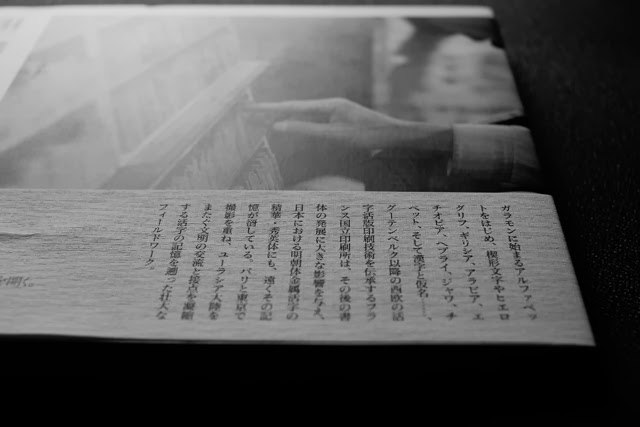 ガラモンに始まるアルファベッ
トをはじめ、楔形文字やヒエロ
グリフ、ギリシア、アラビア、エ
チオピア、ヘブライ、ジャワ、チ
ベット、そして漢字と仮名——、
グーテンベルク以降の西欧の活
字活版印刷技術を伝承するフラ
ンス国立印刷所は、その後の書
体の発展に大きな影響を与え、
日本における明朝体金属活字の
精華・秀英体にも、遠くその記
憶が宿している。パリと東京で
撮影を重ね、ユーラシア大陸を
またぐ文明の交流と接点を凝縮
する活字の記憶を遡った壮大な
フィールドワーク。
を開く。